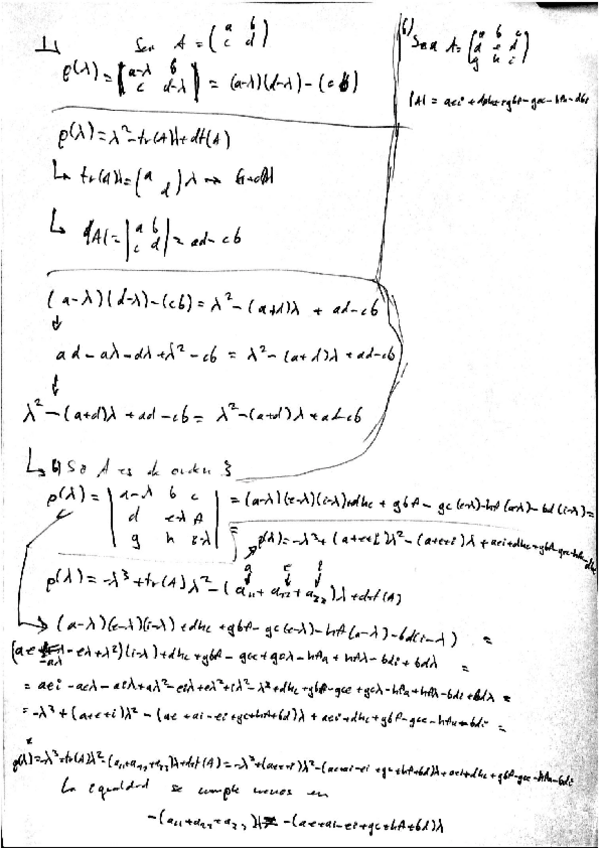 1)
Sea A = (a b
c d)
ρ(λ) = |a-λ b
c d-λ| = (a-λ)(d-λ) - (cb)
ρ(λ) = λ² - tr(A)λ + dt(A)
↳ tr(A)λ = (a
d) λ →
↳ |A| = |a b
c d| = ad - cb
(a-λ)(d-λ) - (cb) = λ² - (a+d)λ + ad - cb
↓
ad - aλ - dλ + λ² - cb = λ² - (a+d)λ + ad - cb
↓
λ² - (a+d)λ + ad - cb = λ² - (a+d)λ + ad - cb
b) Sea A = (a b c
d e d
g h i)
|A| = aei + dhc + gbf - gec - hfa - dbi
↳ b) Si A es de orden 3
ρ(λ) = |a-λ b c
d e-λ f
g h i-λ| = (a-λ)(e-λ)(i-λ) + dhc + gbf - gc(e-λ) - hf(a-λ) - bd(i-λ) =
ρ(λ) = -λ³ + (a+e+i)λ² - (a+e+i)λ + aei + dhc + gbf - gec - hfa - dbi
a e i
ρ(λ) = -λ³ + tr(A)λ² - (a₁₁ + a₂₂ + a₃₃)λ + det(A)
→ (a-λ)(e-λ)(i-λ) + dhc + gbf - gc(e-λ) - hf(a-λ) - bd(i-λ) =
(ae - aλ - eλ + λ²)(i-λ) + dhc + gbf - gce + gcλ - hfa + hfλ - bdi + bdλ =
= aei - aeλ - aiλ + aλ² - eiλ + eλ² + iλ² - λ³ + dhc + gbf - gce + gcλ - hfa + hfλ - bdi + bdλ =
= -λ³ + (a+e+i)λ² - (ae + ai - ei + gc + hf + bd)λ + aei + dhc + gbf - gec - hfa - bdi =
ρ(λ) = -λ³ + tr(A)λ² - (a₁₁ + a₂₂ + a₃₃)λ + det(A) = -λ³ + (a+e+i)λ² - (ae + ai - ei + gc + hf + bd)λ + aei + dhc + gbf - gec - hfa - bdi
La igualdad se cumple menos en
-(a₁₁ + a₂₂ + a₃₃)λ ≠ -(ae + ai - ei + gc + hf + bd)λ